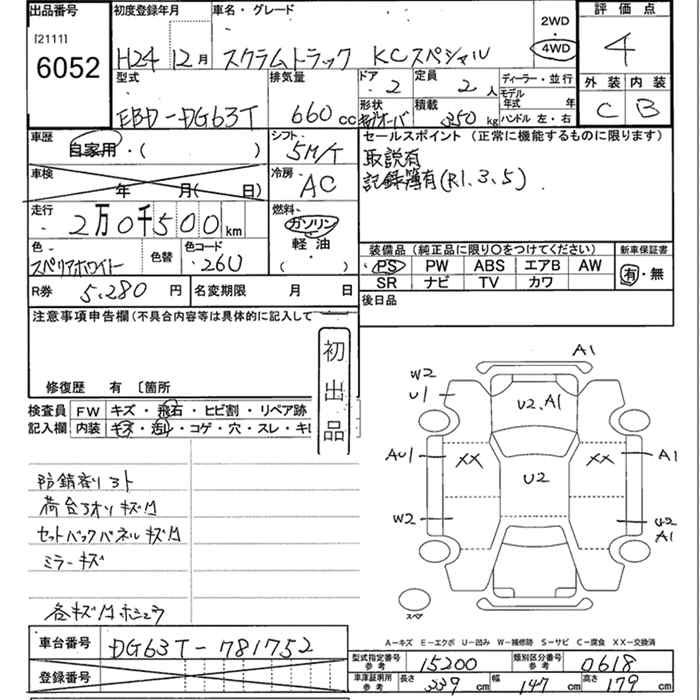 出品番号 初度登録年月 車名・グレード 2WD ・ 4WD 評価点
[2111]
6052 H24 12月 スクラムトラック KCスペシャル 4
型式 排気量 ドア 2 定員 2人 ディーラー・並行 外装 内装
EBD-DG63T 660cc 形状 積載 350kg モデル年式 年 C B
ハンドル 左・右
車歴 自家用・( ) シフト 5M/T セールスポイント (正常に機能するものに限ります)
車検 年 月( 日) 冷房 AC 取説有
記録簿有(R1.3.5)
走行 2万0千500km 燃料 ガソリン・軽油 ( )
色 スペリアホワイト 色替 色コード 26U
装備品 (純正品に限り○をつけてください) 新車保証書
PS PW ABS エアB AW 有・無
SR ナビ TV カワ
R券 5,280円 名変期限 月 日 後日品
注意事項申告欄 (不具合内容等は具体的に記入して
初出品
修復歴 有 〔箇所
検査員 FW キズ・飛石・ヒビ割・リペア跡
記入欄 内装 キズ・汚れ・コゲ・穴・スレ・キレ
防錆塗リヨト
荷台アオリキズ凹
セットバックパネルキズ凹
ミラーキズ
各キズ凹ホシュウ
A1
W2
U1
U2.A1
AU1 XX XX A1
U2
W2 U2
A1
スペア
A-キズ E-エクボ U-凹み W-補修跡 S-サビ C-腐食 XX-交換済
車台番号 DG63T-781752
型式指定番号 参考 15200 類別区分番号 参考 0618
登録番号
車庫証明用 参考 長さ 339cm 幅 147cm 高さ 179cm